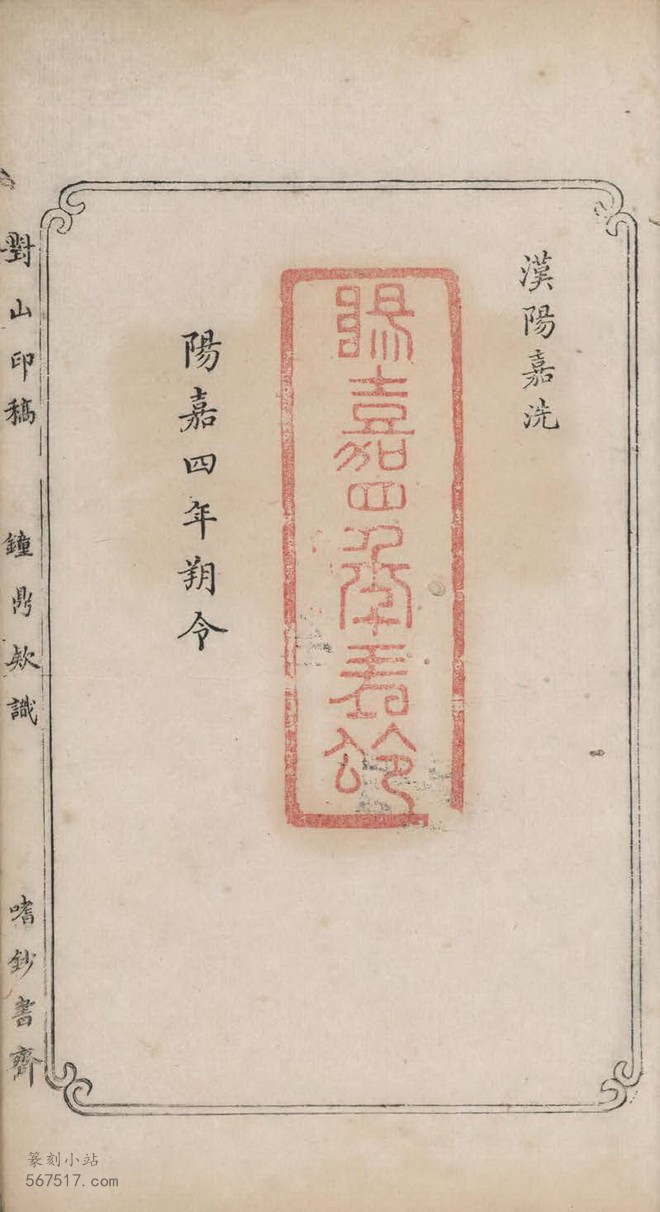 漢陽嘉洗
陽嘉四年朔令
對山印稿
鐘鼎欵識
嗜鈔書齊
篆刻小站
567517.com